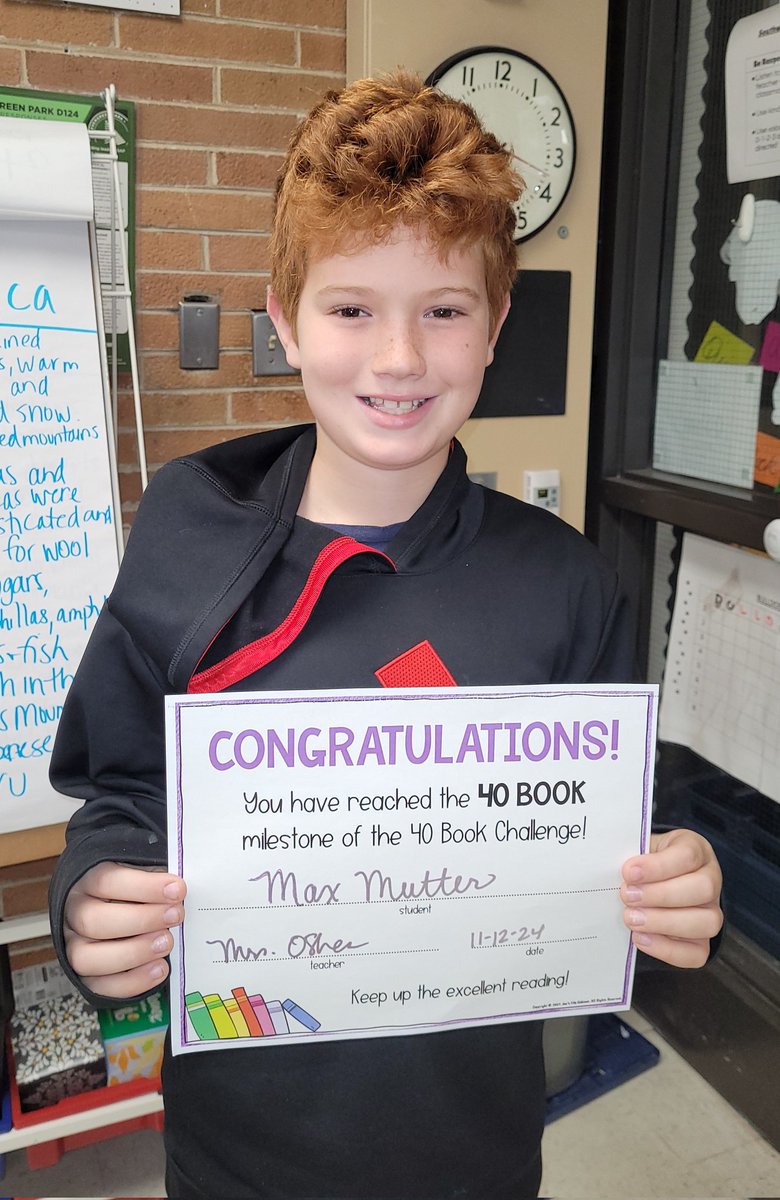 REEN PARK D124
11 12 1 2 3 4 5
ca
ined
s, warm
and
d snow.
ed mountains
as and
as were
sticated and
for wool
gars,
hillas, amph
fish
h in th
s Moun
YU
CONGRATULATIONS!
You have reached the 40 BOOK
milestone of the 40 Book Challenge!
Max Mutter
student
Mrs. Oshea
11-12-24
teacher
date
Keep up the excellent reading!